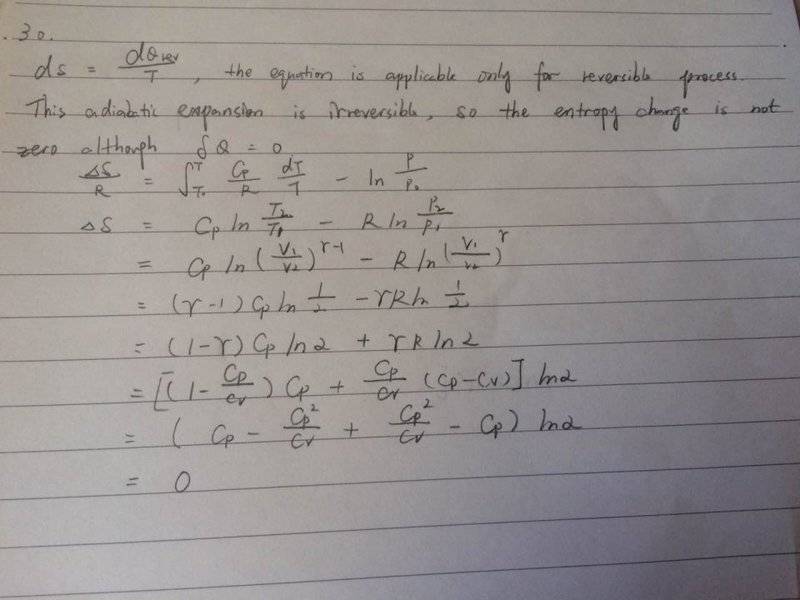 30.
ds = dQrev/T , the equation is applicable only for reversible process.
This adiabatic expansion is irreversible, so the entropy change is not
zero although δQ = 0
ΔS/R = ∫_T₀^T Cp/R dT/T - ln P/P₀
ΔS = Cp ln T₂/T₁ - R ln P₂/P₁
= Cp ln (V₁/V₂)^(r-1) - R ln (V₁/V₂)^r
= (r-1) Cp ln 1/2 - rR ln 1/2
= (1-r) Cp ln2 + rR ln2
= [(1 - Cp/Cv) Cp + Cp/Cv (Cp-Cv)] ln2
= ( Cp - Cp²/Cv + Cp²/Cv - Cp) ln2
= 0